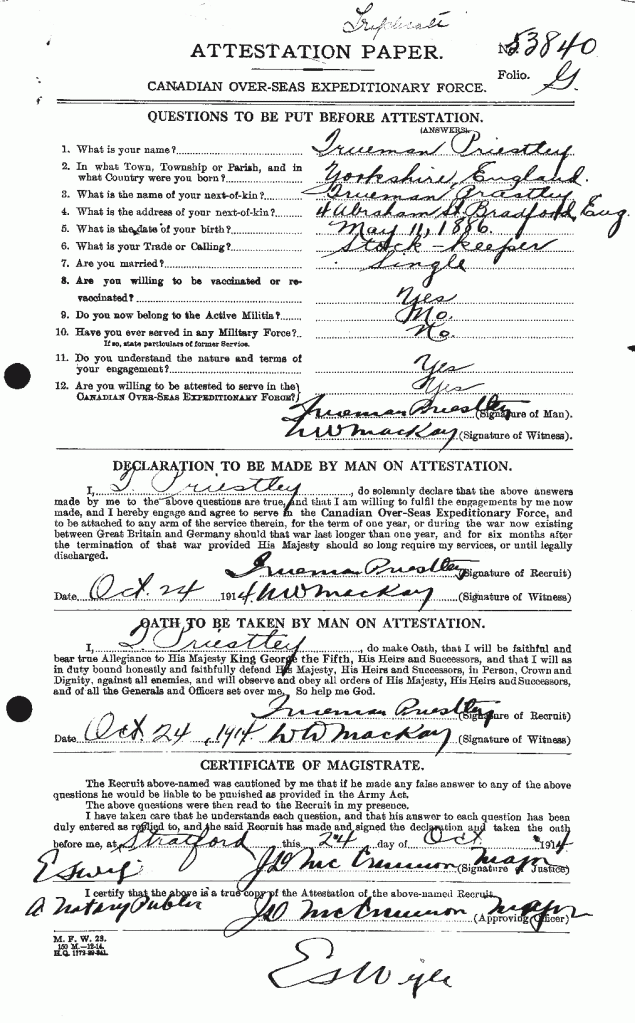 Triplicate
ATTESTATION PAPER.
No. 53840
Folio. G.
CANADIAN OVER-SEAS EXPEDITIONARY FORCE.
QUESTIONS TO BE PUT BEFORE ATTESTATION.
(ANSWERS).
1. What is your name? Trueman Priestley
2. In what Town, Township or Parish, and in
what Country were you born? Yorkshire, England.
3. What is the name of your next-of-kin? Trueman Priestley
4. What is the address of your next-of-kin? 4 Abraham St. Bradford, Eng
5. What is the date of your birth? May 11, 1886.
6. What is your Trade or Calling? Stock-keeper
7. Are you married? Single
8. Are you willing to be vaccinated or re-
vaccinated? Yes
9. Do you now belong to the Active Militia? No.
10. Have you ever served in any Military Force? No.
If so, state particulars of former Service.
11. Do you understand the nature and terms of
your engagement? Yes
12. Are you willing to be attested to serve in the Yes
CANADIAN OVER-SEAS EXPEDITIONARY FORCE?
Trueman Priestley (Signature of Man).
WW MacKay (Signature of Witness).
DECLARATION TO BE MADE BY MAN ON ATTESTATION.
I, T Priestley, do solemnly declare that the above answers
made by me to the above questions are true, and that I am willing to fulfil the engagements by me now
made, and I hereby engage and agree to serve in the Canadian Over-Seas Expeditionary Force, and
to be attached to any arm of the service therein, for the term of one year, or during the war now existing
between Great Britain and Germany should that war last longer than one year, and for six months after
the termination of that war provided His Majesty should so long require my services, or until legally
discharged.
Trueman Priestley (Signature of Recruit)
Date Oct. 24 1914 WW MacKay (Signature of Witness)
OATH TO BE TAKEN BY MAN ON ATTESTATION.
I, T Priestley, do make Oath, that I will be faithful and
bear true Allegiance to His Majesty King George the Fifth, His Heirs and Successors, and that I will as
in duty bound honestly and faithfully defend His Majesty, His Heirs and Successors, in Person, Crown and
Dignity, against all enemies, and will observe and obey all orders of His Majesty, His Heirs and Successors,
and of all the Generals and Officers set over me. So help me God.
Trueman Priestley (Signature of Recruit)
Date Oct. 24, 1914. WW MacKay (Signature of Witness)
CERTIFICATE OF MAGISTRATE.
The Recruit above-named was cautioned by me that if he made any false answer to any of the above
questions he would be liable to be punished as provided in the Army Act.
The above questions were then read to the Recruit in my presence.
I have taken care that he understands each question, and that his answer to each question has been
duly entered as replied to, and the said Recruit has made and signed the declaration and taken the oath
before me, at Stratford this 24 day of Oct. 1914
Major (Signature of Justice)
I certify that the above is a true copy of the Attestation of the above-named Recruit.
A Notary Public Major (Approving Officer)
M. F. W. 23.
150 M.—12-14.
H.Q. 1772-39-841.